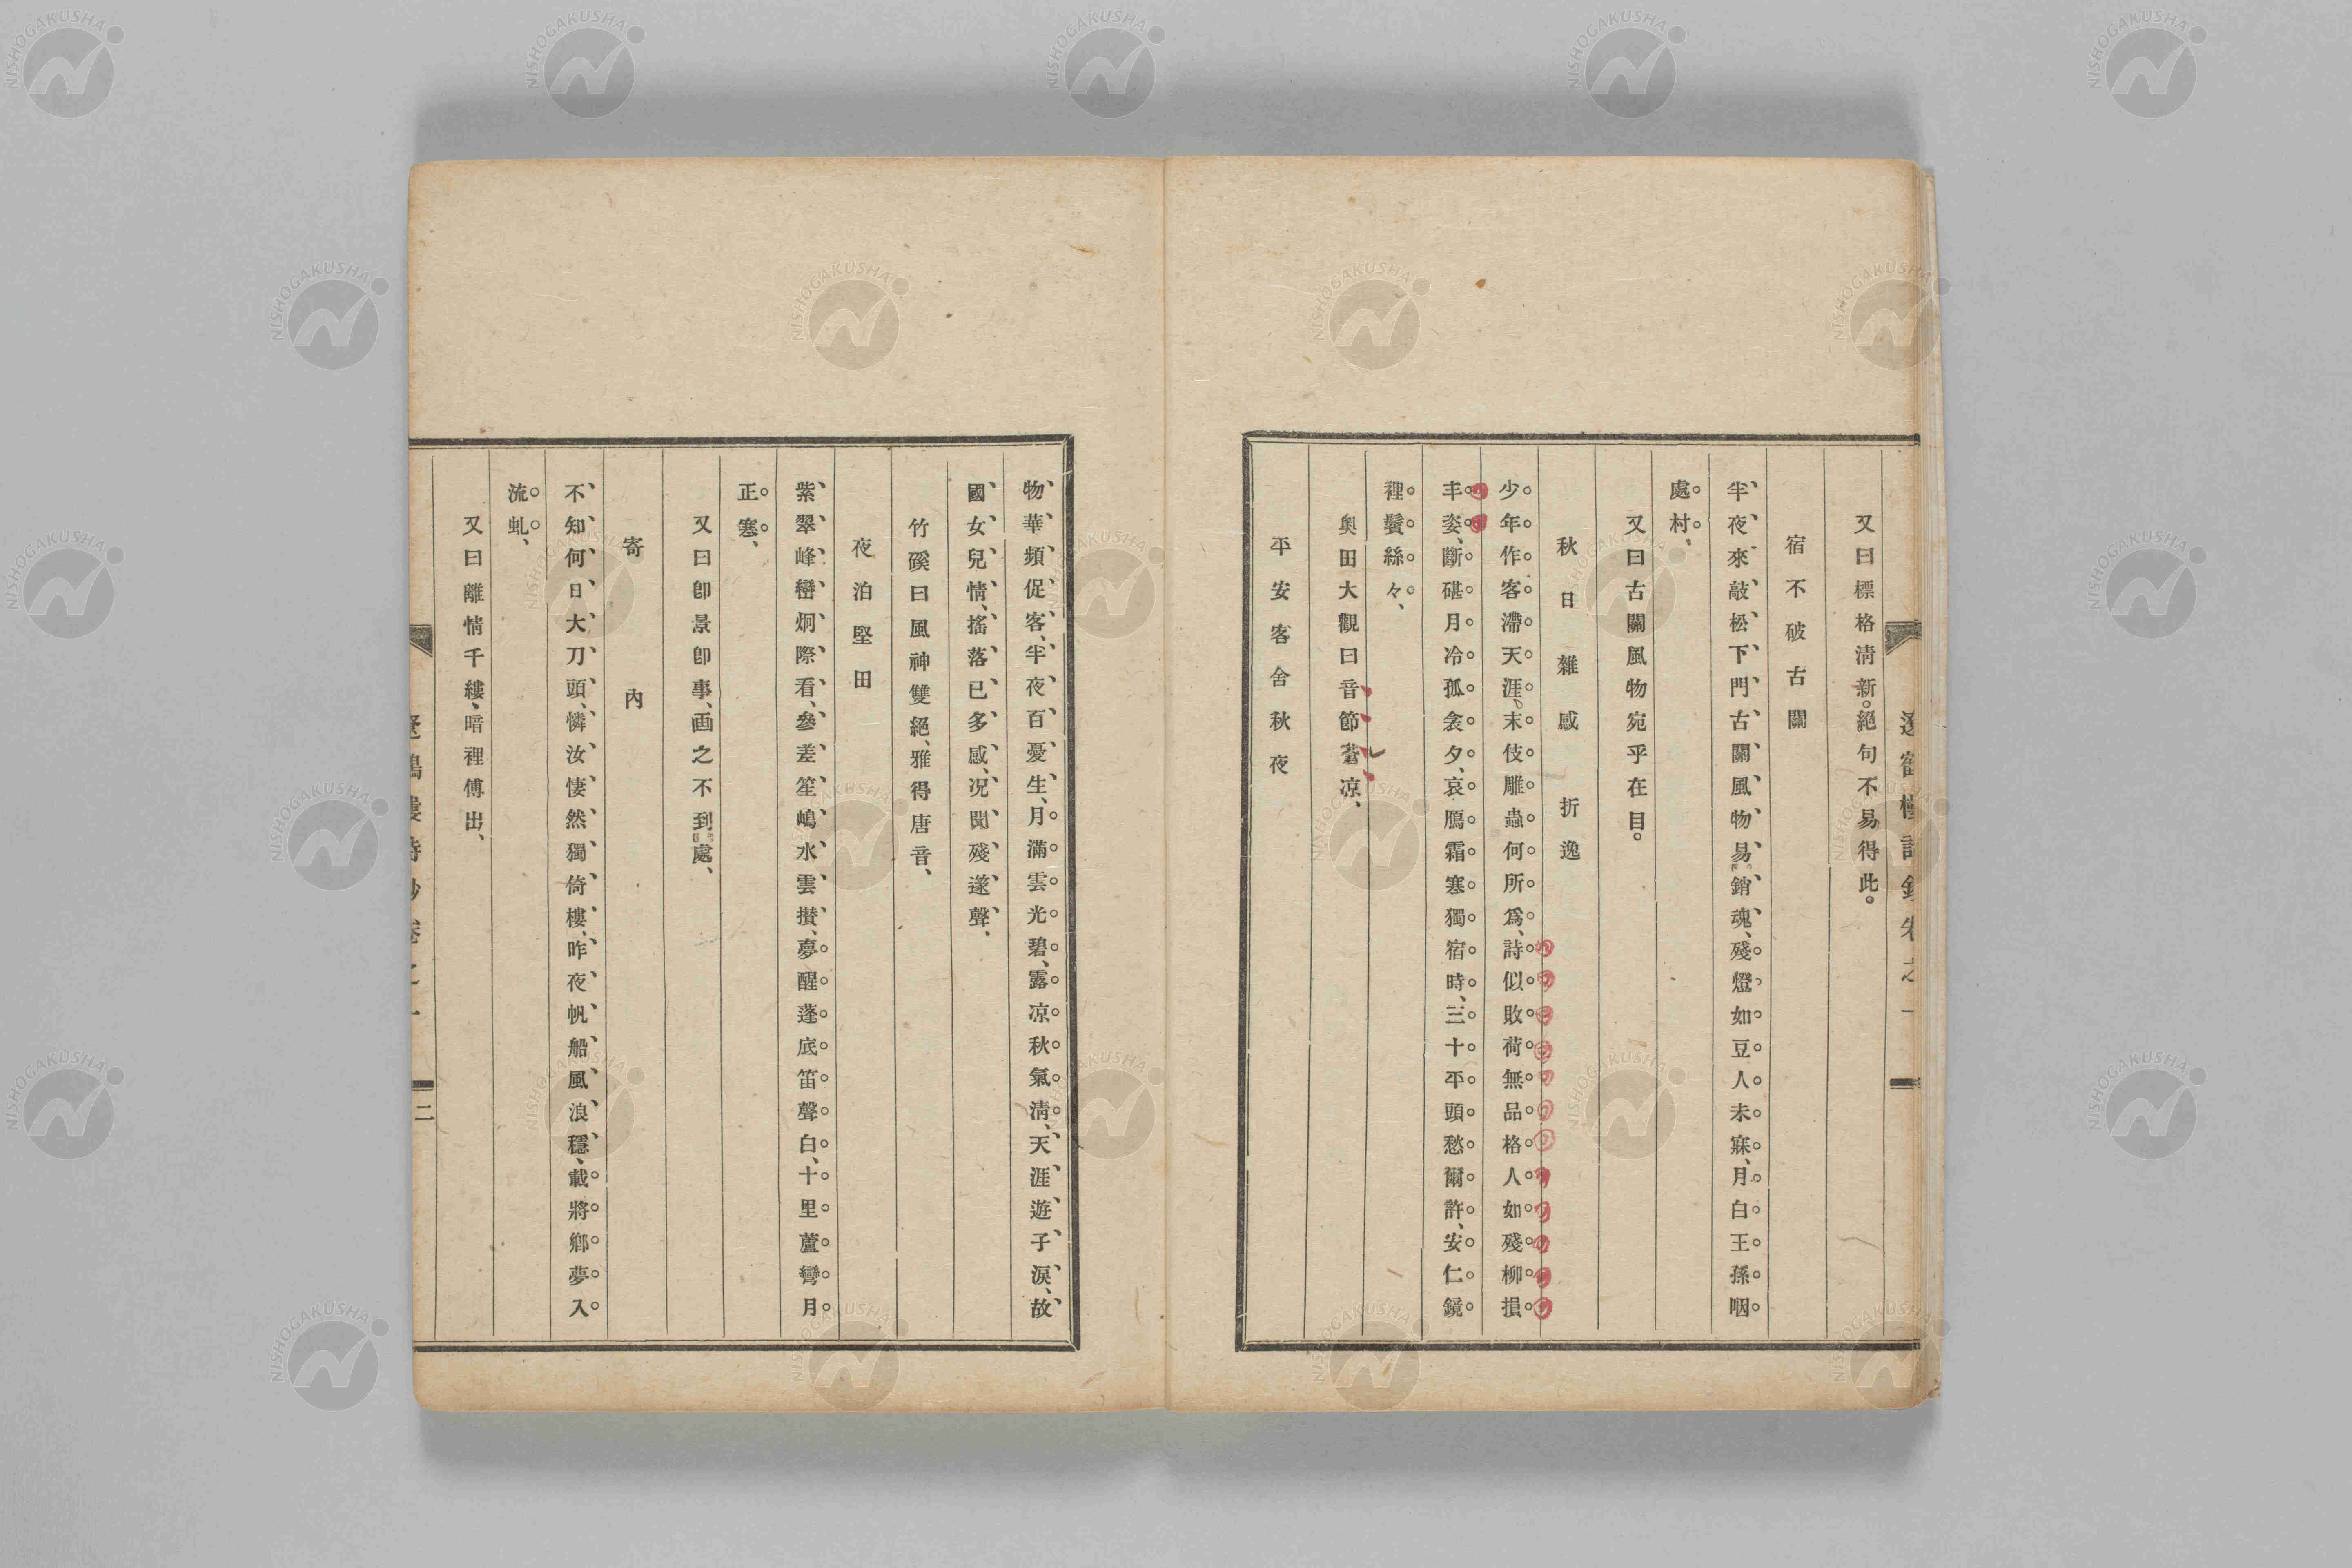 又曰標格淸新。絕句不易得此。
宿不破古關
半夜來敲松下門古關風物易銷魂、殘燈如豆人未寐、月白王孫咽
處村、
又曰古關風物宛乎在目。
秋日雜感 折逸
少年作客滯天涯。末伎雕蟲何所爲、詩似敗荷無品格人如殘柳損
丰姿、斷碪月冷孤衾夕、哀鴈霜寒獨宿時、三十平頭愁爾許、安仁鏡
裡鬢絲々、
奧田大觀曰音節蒼凉、
平安客舍秋夜
物華頻促客、半夜百憂生、月滿雲光碧、露凉秋氣淸、天涯遊子淚、故
國女兒情、搖落已多感、况聞殘遂聲、
竹磎曰風神雙絕、雅得唐音、
夜泊堅田
紫翠峰巒烱際看、參差笙嶋水雲攅、夢醒蓬底笛聲白、十里蘆彎月
正寒、
又曰卽景卽事、画之不到處、
寄內
不知何日大刀頭、憐汝悽然獨倚樓、昨夜帆船風浪穩、載將鄉夢入
流虬、
又曰離情千縷、暗裡傅出、
二